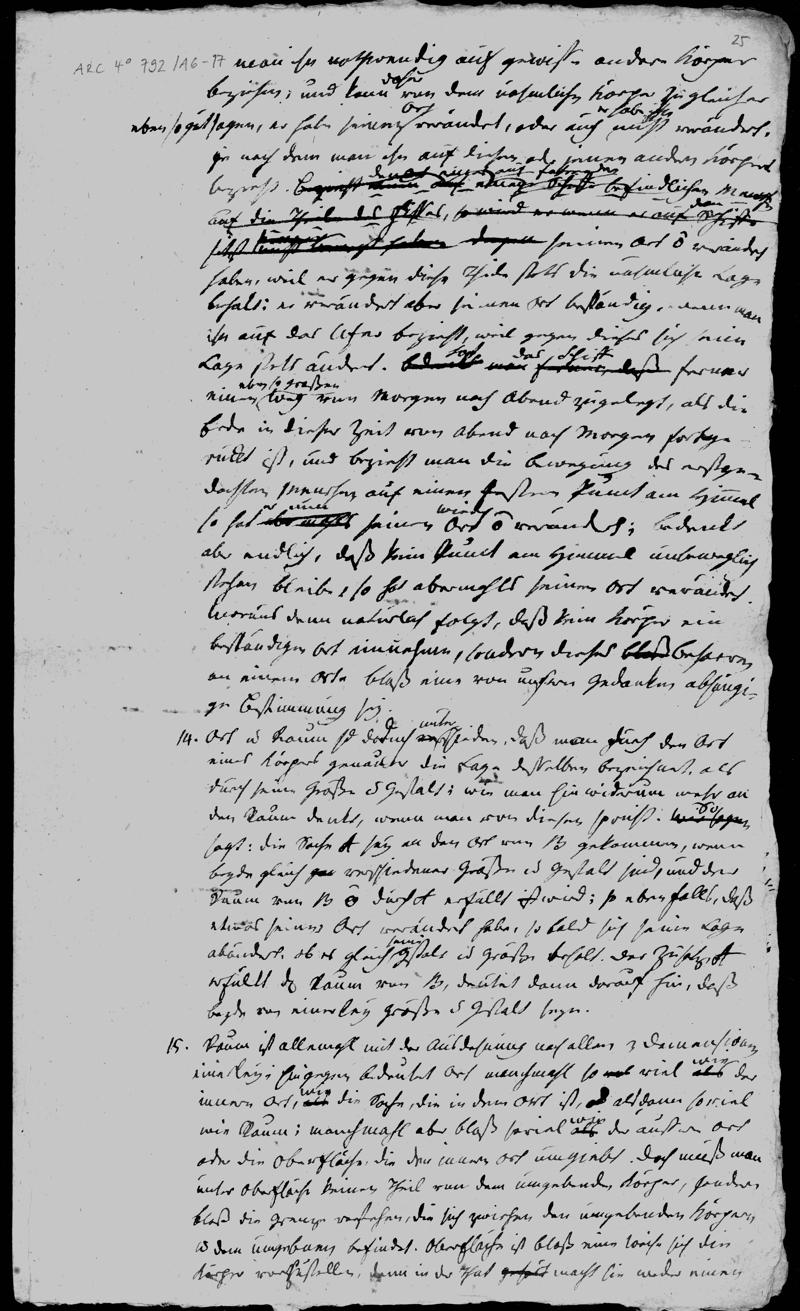 25
ARC 4° 792/A6-17
man ihn nothwendig auf gewisse andere Körper
beziehen; und kann daher von dem nähmlichen Körper zugleicher
eben so gut sagen, er habe seinen Ort verändert, oder auch er habe ihn nicht verändert,
je nach dem man ihn auf diesen od. jenen andern Körper
bezieht. befindlichen Mensch
auf die Theile des Schiffes, so wird er wenn er auf dem Schiffe
seinen Ort ō verändert
haben, weil er gegen diese Theile stets die nähmliche Lage
behält: er verändert aber seinen Ort beständig, wenn man
ihn auf das Ufer bezieht, weil gegen dieses sich seine
Lage stets ändert. das Schiff ferner
einen eben so großen Weg von Morgen nach Abend zugelegt, als die
Erde in dieser Zeit von Abend nach Morgen fortge-
rückt ist, und bezieht man die Bewegung des erstge-
dachten Menschen auf einen festen Punct am Himmel
so hat er nun seinen Ort wieder ō verändert; bedenkt
aber endlich, daß kein Punct am Himmel unbeweglich
stehen bleibe, so hat abermahls seinen Ort verändert.
Woraus denn natürlich folgt, daß kein Körper ein
beständigen Ort einnehme, sondern dieses bloß beharren
an einem Orte bloß eine von unsern Gedanken abhängi-
ge Bestimmung sey.
14. Ort u Raum sd dadurch unterschieden, daß man durch den Ort
eines Körpers genauer die Lage desselben bezeichnet, als
durch seine Größe u Gestalt; wie man hinwiderum mehr an
den Raum denkt, wenn man von diesen spricht. So
sagt: die Sache A sey an den Ort von B gekommen, wenn
beyde gleich verschiedener Größe u Gestalt sind, und der
Raum von B ō durch A erfüllt wird; so ebenfalls, daß
etwas seinen Ort verändert habe, so bald sich seine Lage
abändert, ob es gleich seine Gestalt u Größe behält. Der Zusatz, A
erfüllt dɣ Raum von B, deutet dann darauf hin, daß
beyde von einerley Größe u Gestalt seyn.
15. Raum ist allemahl mit der Ausdehnung nach allen 3 Dimensionen
einerley; hingegen bedeutet Ort manchmahl so viel wie der
innere Ort, wie die Sache, die in dem Ort ist, u alsdann soviel
wie Raum; manchmahl aber bloß soviel wie der äußere Ort
oder die Oberfläche, die den innern Ort umgiebt. Doch muß man
unter Oberfläche keinen Theil von dem umgebenden Körper, sondern
bloß die Grenze verstehen, die sich zwischen den umgebenden Körpern
u dem umgebenen befindet. Oberfläche ist bloß eine Weise sich die
Körper vorzustellen, denn in der That macht sie weder einen